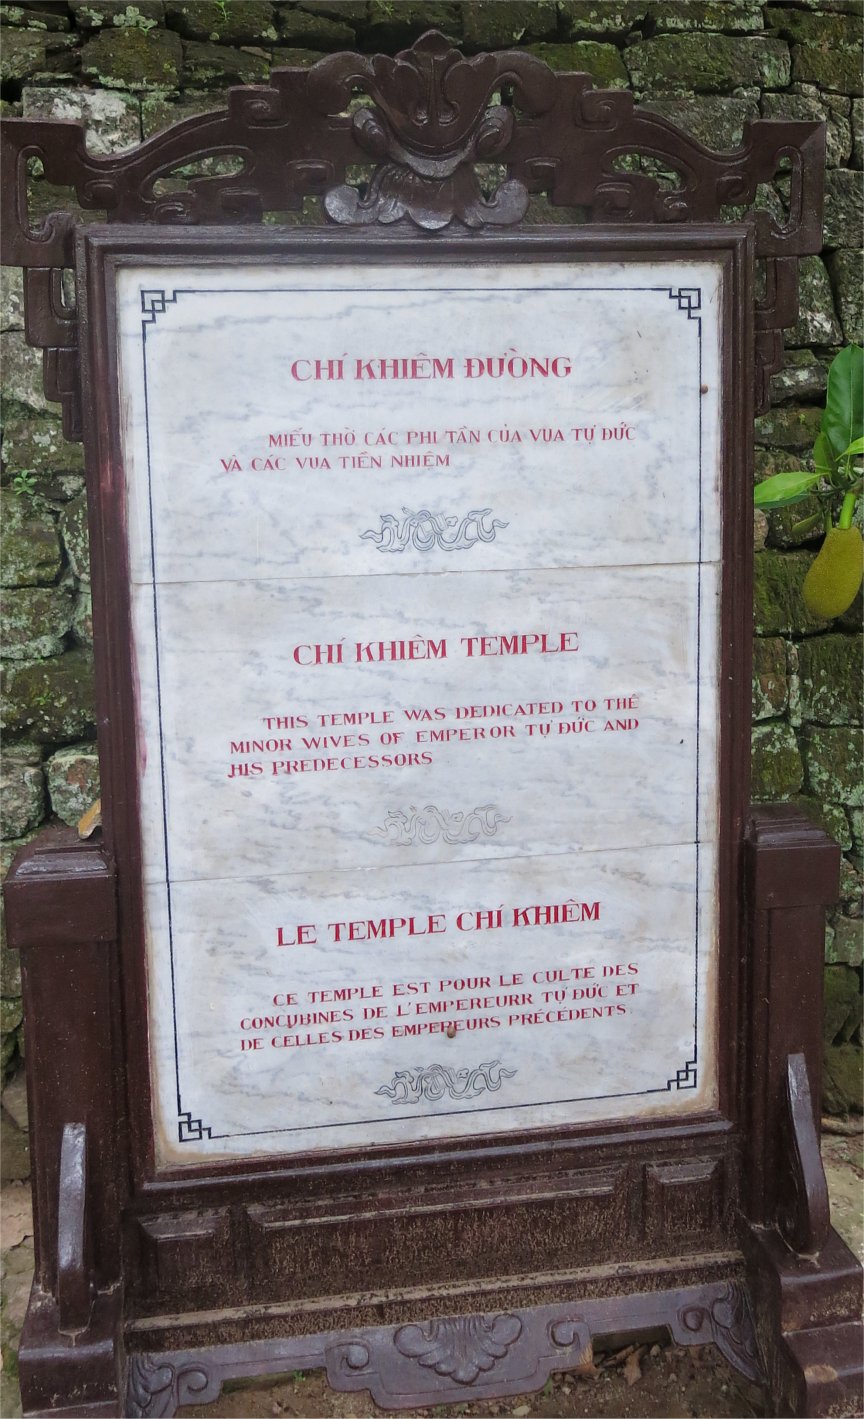 CHÍ KHIÊM ĐƯỜNG
MIẾU THỜ CÁC PHI TẦN CỦA VUA TỰ ĐỨC
VÀ CÁC VUA TIỀN NHIỆM
CHÍ KHIÊM TEMPLE
THIS TEMPLE WAS DEDICATED TO THE
MINOR WIVES OF EMPEROR TỰ ĐỨC AND
HIS PREDECESSORS
LE TEMPLE CHÍ KHIÊM
CE TEMPLE EST POUR LE CULTE DES
CONCUBINES DE L'EMPEREURR TỰ ĐỨC ET
DE CELLES DES EMPEREURS PRÉCÉDENTS.